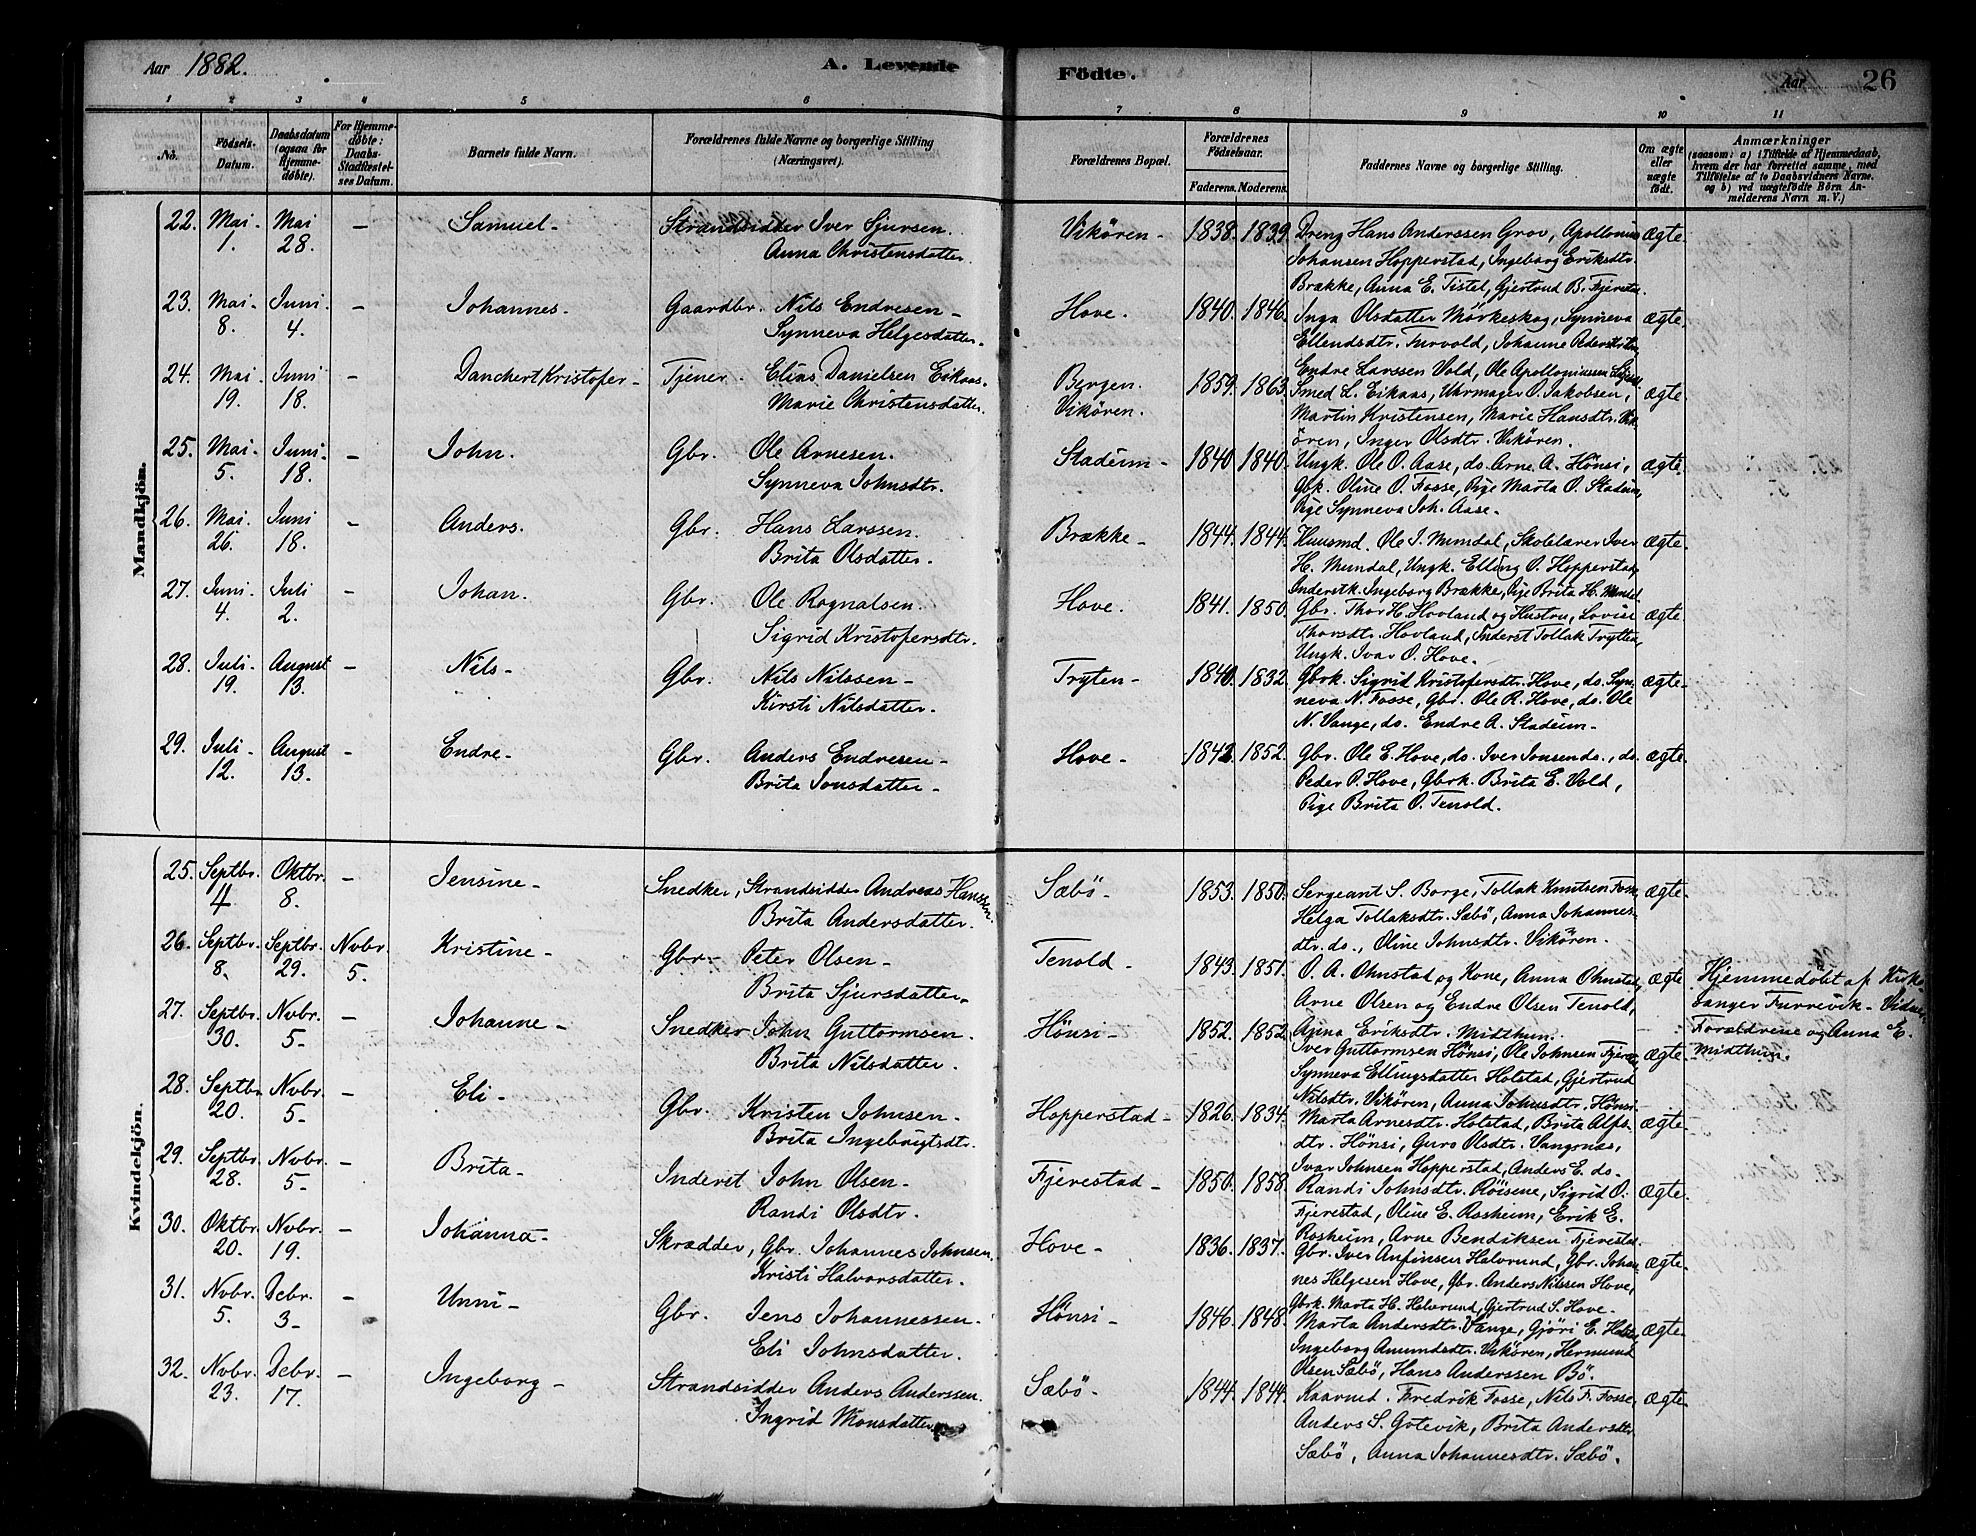 Aar 1882. A. Levende Födte. Aar 26
1 2 3 4 5 6 7 8 9 10 11
No. Födsels-Datum. Daabsdatum (ogsaa for Hjemme-døbte). For Hjemme-døbte: Daabs-Stadfæstel-ses Datum. Barnets fulde Navn. Forældrenes fulde Navne og borgerlige Stilling (Næringsvei). Forældrenes Bopæl. Forældrenes Födselsaar. Faderens. Moderens. Faddernes Navne og borgerlige Stilling. Om ægte eller uægte födt. Anmærkninger
(saasom: a) i Tilfælde af Hjemmedaab,
hvem der har forrettet samme, med
Tilföielse af to Daabsvidners Navne.
og b) ved uægtefödte Börn An-
melderens Navn m. V.)
Mandkjön.
22. Mai 1. Mai 28. – Samuel – Strandsidder Iver Sjursen. Vikören – 1838. 1839. Dreng Hans Anderssen Grov, Apollonius ægte.
Anna Christensdatter. Johansen Hopperstad, Ingeborg Eriksdtr.
Brække, Anna E. Tistel, Gjertrud B. Fjerestad.
23. Mai 8. Juni 4. – Johannes. Gaardbr. Nils Endresen – Hove. 1840. 1846. Inga Olsdatter Mörkeskog, Synneva ægte.
Synneva Helgesdatter. Ellendsdtr. Turvold, Johanne Pedersdatter,
Endre Larssen Vold, Ole Apolloniussen
24. Mai 19. Juni 18. – Danchert Kristofer – Tjener. Elias Danielsen Eikaas. Bergen. 1859. 1863. Smed L. Eikaas, Uhrmager O. Jakobsen, ægte.
Marie Christensdatter. Vikören. Martin Kristensen, Marie Hansdtr. Vik
ören, Inger Olsdtr. Vikören.
25. Mai 5. Juni 18. – John. Gbr. Ole Arnesen. Stadeim – 1840. 1840. Ungk. Ole O. Aase, do. Arne A. Hönsi, ægte.
Synneva Johnsdtr. Gbk. Oline O. Fosse, Pige Marta O. Stadeim,
Pige Synneva Joh. Aase.
26. Mai 26. Juni 18. – Anders. Gbr. Hans Larssen. Brække – 1844. 1844. Huusmd. Ole I. Mundal, Skolelærer Iver ægte.
Brita Olsdatter. H. Mundal, Ungk. Elling O. Hopperstad,
Inderstk. Ingeborg Brække, Pige Brita H. Mundal
27. Juni 4. Juli 2. – Johan. Gbr. Ole Rognalsen. Hove. 1841. 1850. Gbr. Thor H. Hovland og Hustru, Lovise ægte.
Sigrid Kristofersdtr. Thorsdtr. Hovland, Inderst Tollak Tryten,
Ungk. Ivar O. Hove.
28. Juli 19. August 13. – Nils – Gbr. Nils Nilssen – Tryten – 1840. 1832. Gbrk. Sigrid Kristofersdtr. Hove, do. Syn- ægte –
Kirsti Nilsdatter. neva N. Fosse, Gbr. Ole R. Hove, do. Ole
N. Vange, do. Endre A. Stadeim –
29. Juli 12. August 13. – Endre – Gbr. Anders Endresen – Hove – 1842. 1852. Gbr. Ole E. Hove, do. Iver Jonsen do., do. ægte.
Brita Jonsdatter – Peder P. Hove, Gbrk. Brita E. Vold,
Pige Brita O. Tenold.
Kvindekjön.
25. Septbr. 4 Oktbr. 8. – Jensine – Snedker, Strandsidder Andreas Hanssen. Sæbö – 1853. 1850. Sergeant S. Borge, Tollak Knutsen ægte.
Brita Andersdatter. Helga Tollaksdtr. Sæbö, Anna Johannes-
dtr. do., Oline Johnsdtr. Vikören.
26. Septbr. 8. Septbr. 29. Novbr. 5. Kristine – Gbr – Peter Olsen – Tenold – 1843. 1851. O. A. Ohnstad og Kone, Anna Ohnstad, ægte Hjemmedöbt af Kirke-
Brita Sjursdatter. Arne Olsen og Endre Olsen Tenold, sanger Turrevik – Vidner,
Anna Eriksdtr. Midthun. Forældrene og Anna E. Midthun.
27. Septbr. 30. Novbr. 5 – – Johanne – Snedker John Guttormsen. Hönsi – 1852. 1852. Iver Guttormsen Hönsi, Ole Johnsen ægte –
Brita Nilsdatter. Synneva Ellingsdatter Holstad, Gjertrud
Nilsdtr. Vikören, Anna Johnsdtr. Hönsi
28. Septbr. 20. Novbr. 5 – – Eli – Gbr. Kristen Johnsen – Hopperstad – 1826. 1834. Marta Arnesdtr. Holstad, Brita Alfs- ægte –
Brita Ingebrigtsdtr. dtr. Hönsi, Guro Olsdtr. Vangsnes,
Ivar Johnsen Hopperstad, Anders E. do.
29. Septbr. 28. Novbr. 5 – – Brita – Inderst John Olsen – Fjerestad – 1850. 1858. Randi Johnsdtr. Röisene, Sigrid O. ægte.
Randi Olsdtr. Fjerestad, Oline E. Rosheim, Erik E.
Rosheim, Arne Bendiksen Fjerestad.
30. Oktbr. 20. Novbr. 19. – Johanna – Skrædder, Gbr. Johannes Johnsen. Hove – 1836. 1837. Gbr. Iver Anfinsen Halvrund, Gbr. Johan- ægte.
Kristi Halvorsdatter. nes Helgesen Hove, Gbr. Anders Nilssen Hove,
Gbrk. Marta H. Halvrund, Gjertrud S. Hove.
31. Novbr. 5. Decbr. 3 – – Unni – Gbr. Jens Johannessen. Hönsi – 1846. 1848. Marta Andersdtr. Vange, Gjöri E. ægte.
Eli Johnsdatter. Ingeborg Amundsdtr. Vikören, Hermund
Olsen Sæbö, Hans Anderssen Bö.
32. Novbr. 23. Decbr. 17. – Ingeborg – Strandsidder Anders Anderssen. Sæbö – 1844. 1844. Kaarund. Fredrik Fosse, Nils F. Fosse, ægte.
Ingrid Monsdatter. Anders S. Gotevik, Brita Andersdtr.
Sæbö, Anna Johannesdtr. Sæbö.